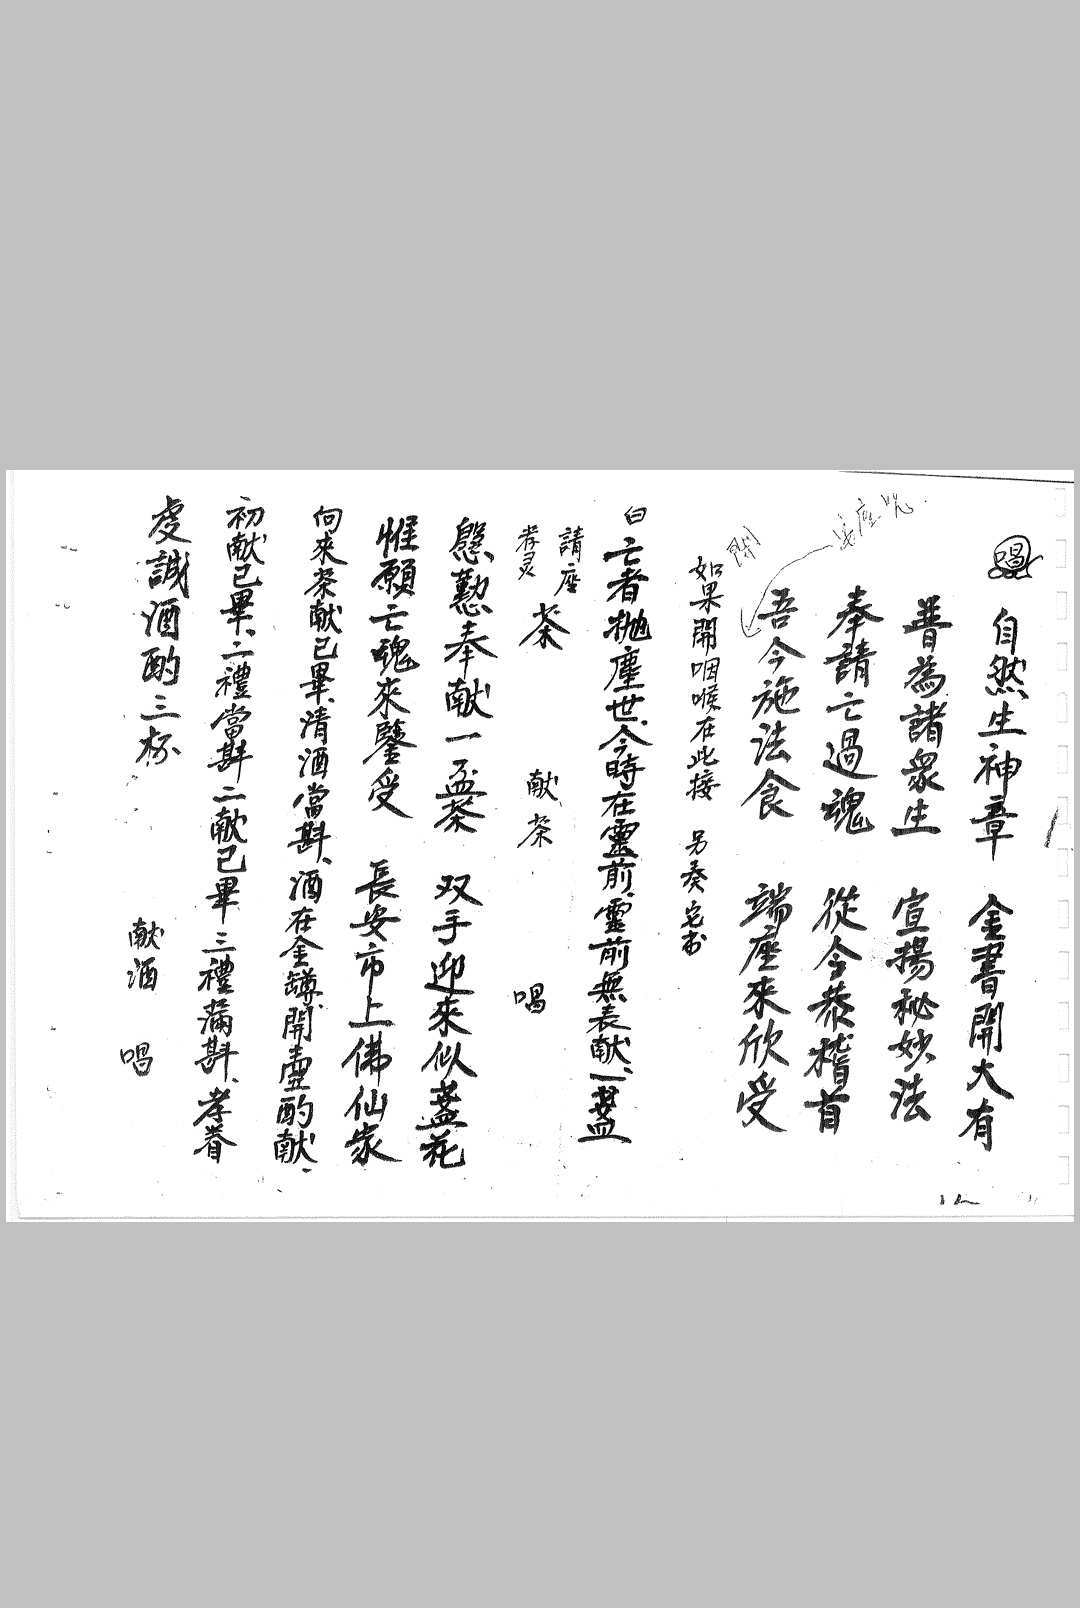 唱
自然生神章 金書開大有
普為諸衆生 宣揚秘妙法
奉請亡過魂 從今恭稽首
吾今施法食 端座來欣受
安座咒
開
如果開咽喉在此接 另奏宅书
白 亡者抛塵世、今時在靈前、靈前無表献、一盞
請座 茶 献茶 唱
孝灵
慇懃奉献一盃茶 双手迎來似盞花
惟願亡魂來鑒受 長安市上佛仙家
向來茶献已畢、清酒當斟、酒在金罇、開壷酌献、
初献已畢、二禮當斟 二献已畢 三禮滿斟、孝眷
虔誠酒酌三杯 献酒 唱